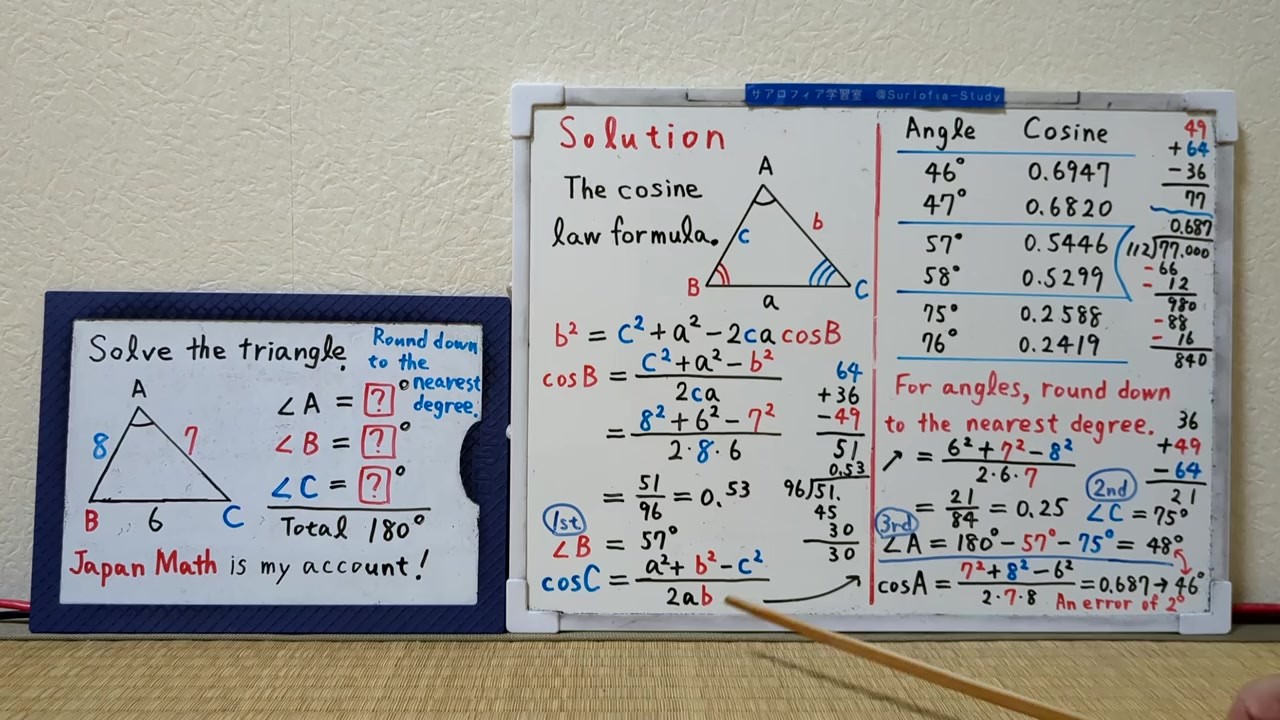 サアロフィア学習室 @Surlofia-Study
Solve the triangle.
Round down
to the
nearest
degree.
A
8
7
B
6
C
∠A = ?°
∠B = ?°
∠C = ?°
Total 180°
Japan Math is my account!
Solution
The cosine
law formula.
A
c
b
B
a
C
b² = c² + a² − 2ca cosB
cosB = (c² + a² − b²) / 2ca
= (8² + 6² − 7²) / 2·8·6
= 51/96 = 0.53
1st
∠B = 57°
cosC = (a² + b² − c²) / 2ab
64
+36
−49
51
0.53
96)51.
45
30
30
Angle Cosine
46° 0.6947
47° 0.6820
57° 0.5446
58° 0.5299
75° 0.2588
76° 0.2419
49
+64
−36
77
0.687
112)77.000
−66
−12
980
−88
−16
840
For angles, round down
to the nearest degree.
= (6² + 7² − 8²) / 2·6·7
= 21/84 = 0.25
2nd
∠C = 75°
36
+49
−64
21
3rd
∠A = 180° − 57° − 75° = 48°
cosA = (7² + 8² − 6²) / 2·7·8 = 0.687 → 46°
An error of 2°